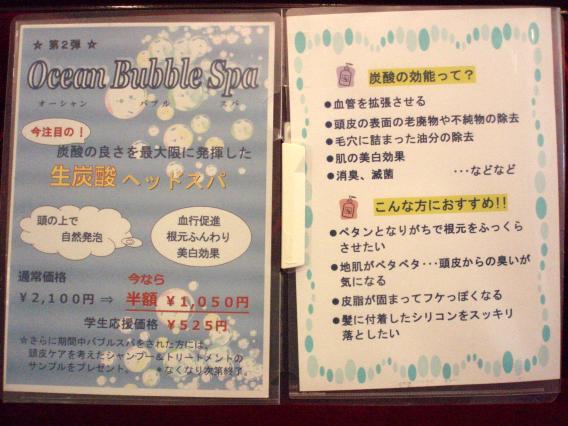 ☆ 第2弾 ☆
Ocean Bubble Spa
オーシャン ・ バブル ・ スパ
今注目の！
炭酸の良さを最大限に発揮した
生炭酸 ヘッドスパ
頭の上で
自然発泡
血行促進
根元ふんわり
美白効果
通常価格 今なら
￥2,100円 ⇒ 半額 ￥1,050円
学生応援価格 ￥525円
☆さらに期間中バブルスパをされた方には、
頭皮ケアを考えたシャンプー＆トリートメントの
サンプルをプレゼント。 ＊なくなり次第終了。
炭酸の効能って？
●血管を拡張させる
●頭皮の表面の老廃物や不純物の除去
●毛穴に詰まった油分の除去
●肌の美白効果
●消臭、滅菌 ･･･などなど
こんな方におすすめ!!
●ペタンとなりがちで根元をふっくら
させたい
●地肌がベタベタ･･･頭皮からの臭いが
気になる
●皮脂が固まってフケっぽくなる
●髪に付着したシリコンをスッキリ
落としたい